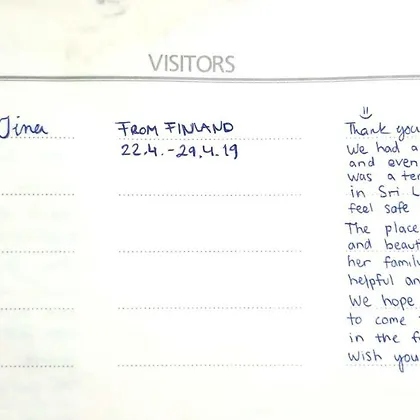 VISITORS
Tina
FROM FINLAND
22.4.-29.4.19
Thank you
We had a
and even
was a ter
in Sri L
feel safe
The place
and beaut
her famil
helpful an
We hope
to come
in the f
wish you